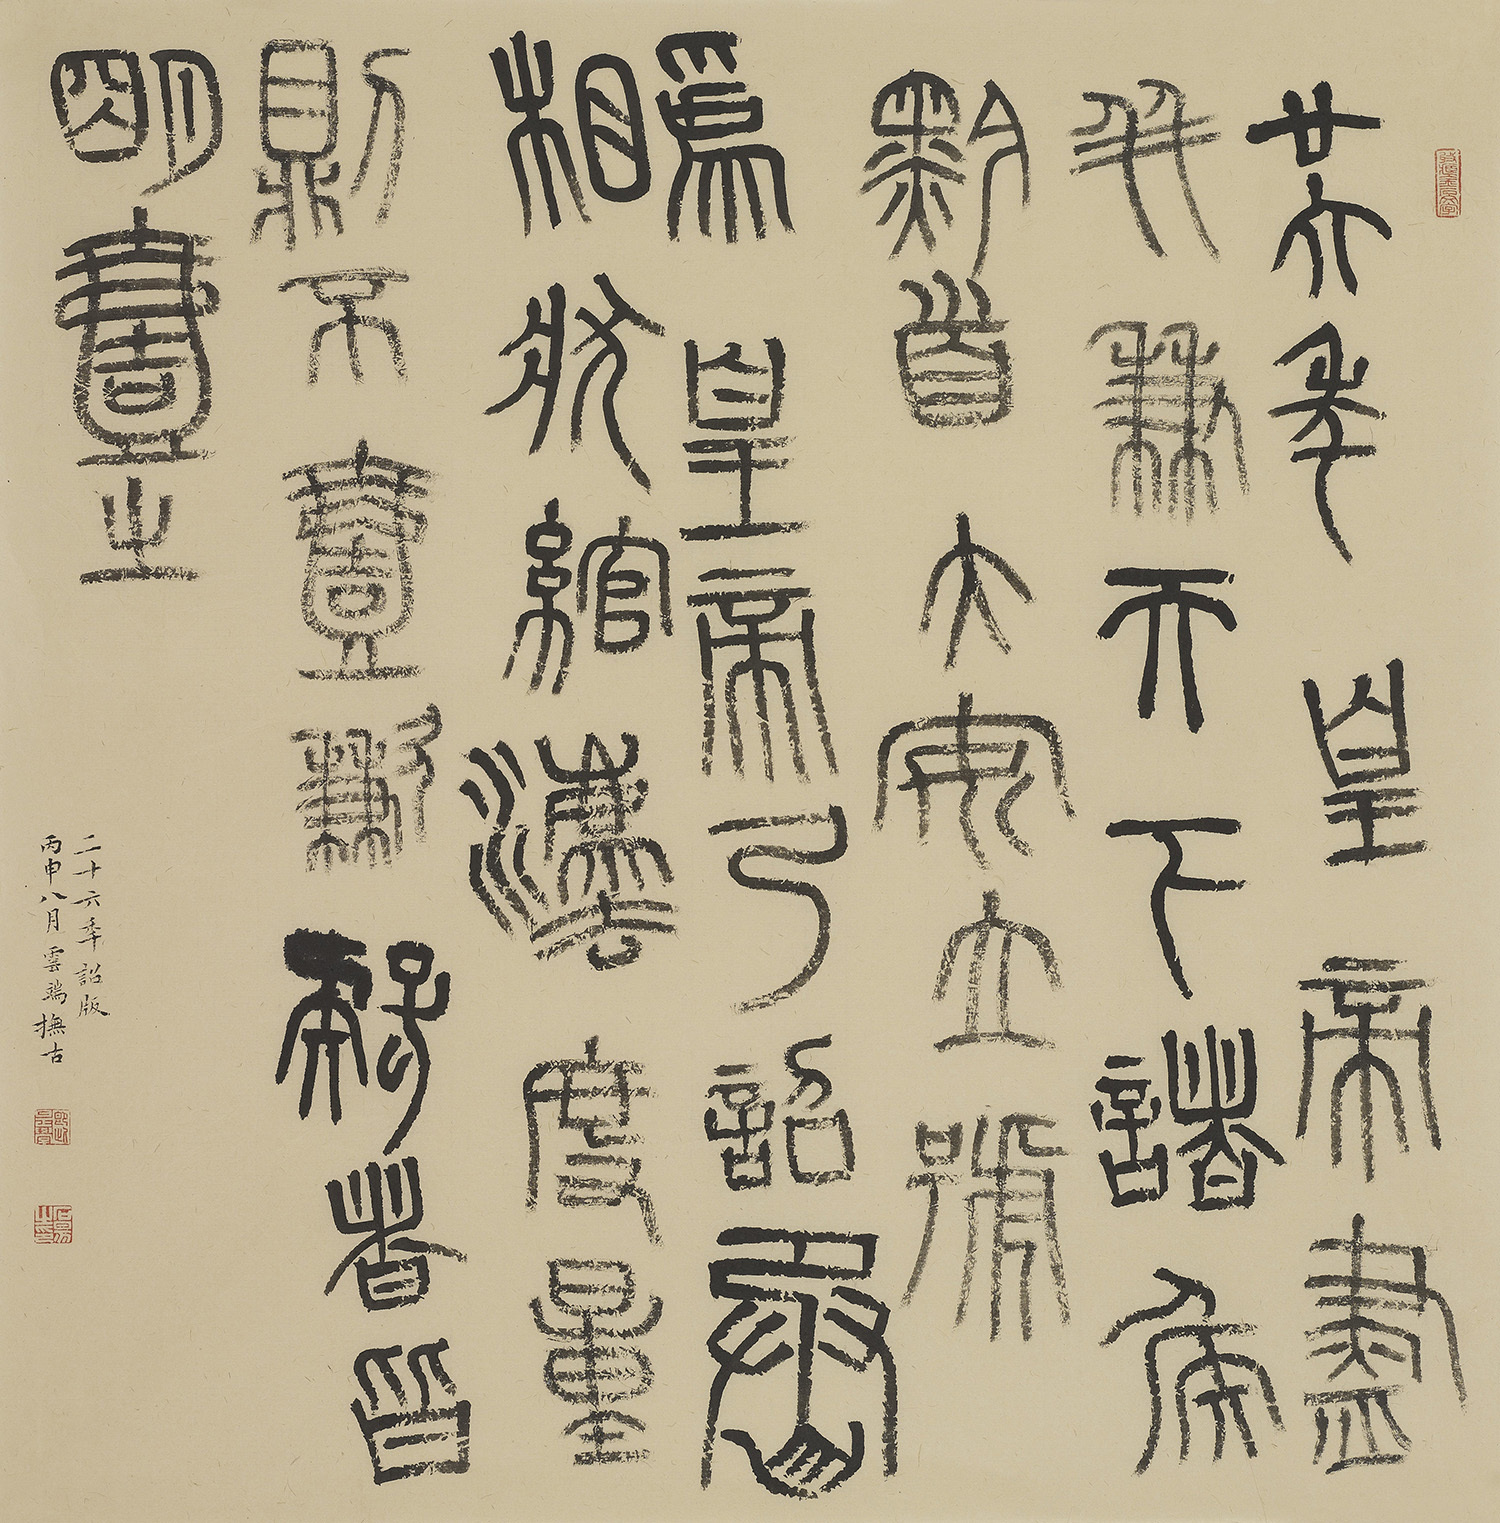 廿六年皇帝盡
并兼天下諸侯
黔首大安立號
爲皇帝乃詔丞
相狀綰灋度量
則不壹歉疑者皆
明壹之
二十六秊詔版
丙申八月雲端撫古